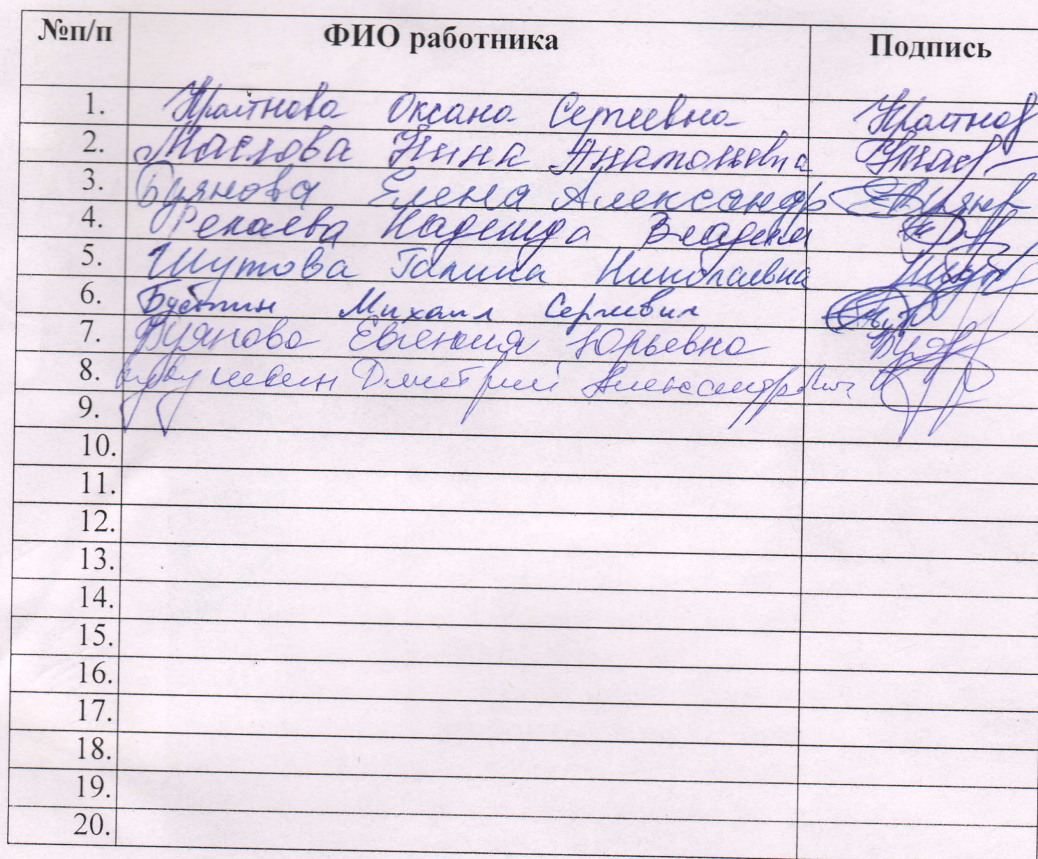 №п/п ФИО работника Подпись
1. Крайнова Оксана Сергеевна Крайнов
2. Маслова Нина Анатольевна
3. Буянова Елена Александр
4. Надежда Владим
5. Шутова Галина Николаевна
6. Михаил Сергевич
7. Буянова Евгения Юрьевна
8. Дмитрий Александрович
9.
10.
11.
12.
13.
14.
15.
16.
17.
18.
19.
20.